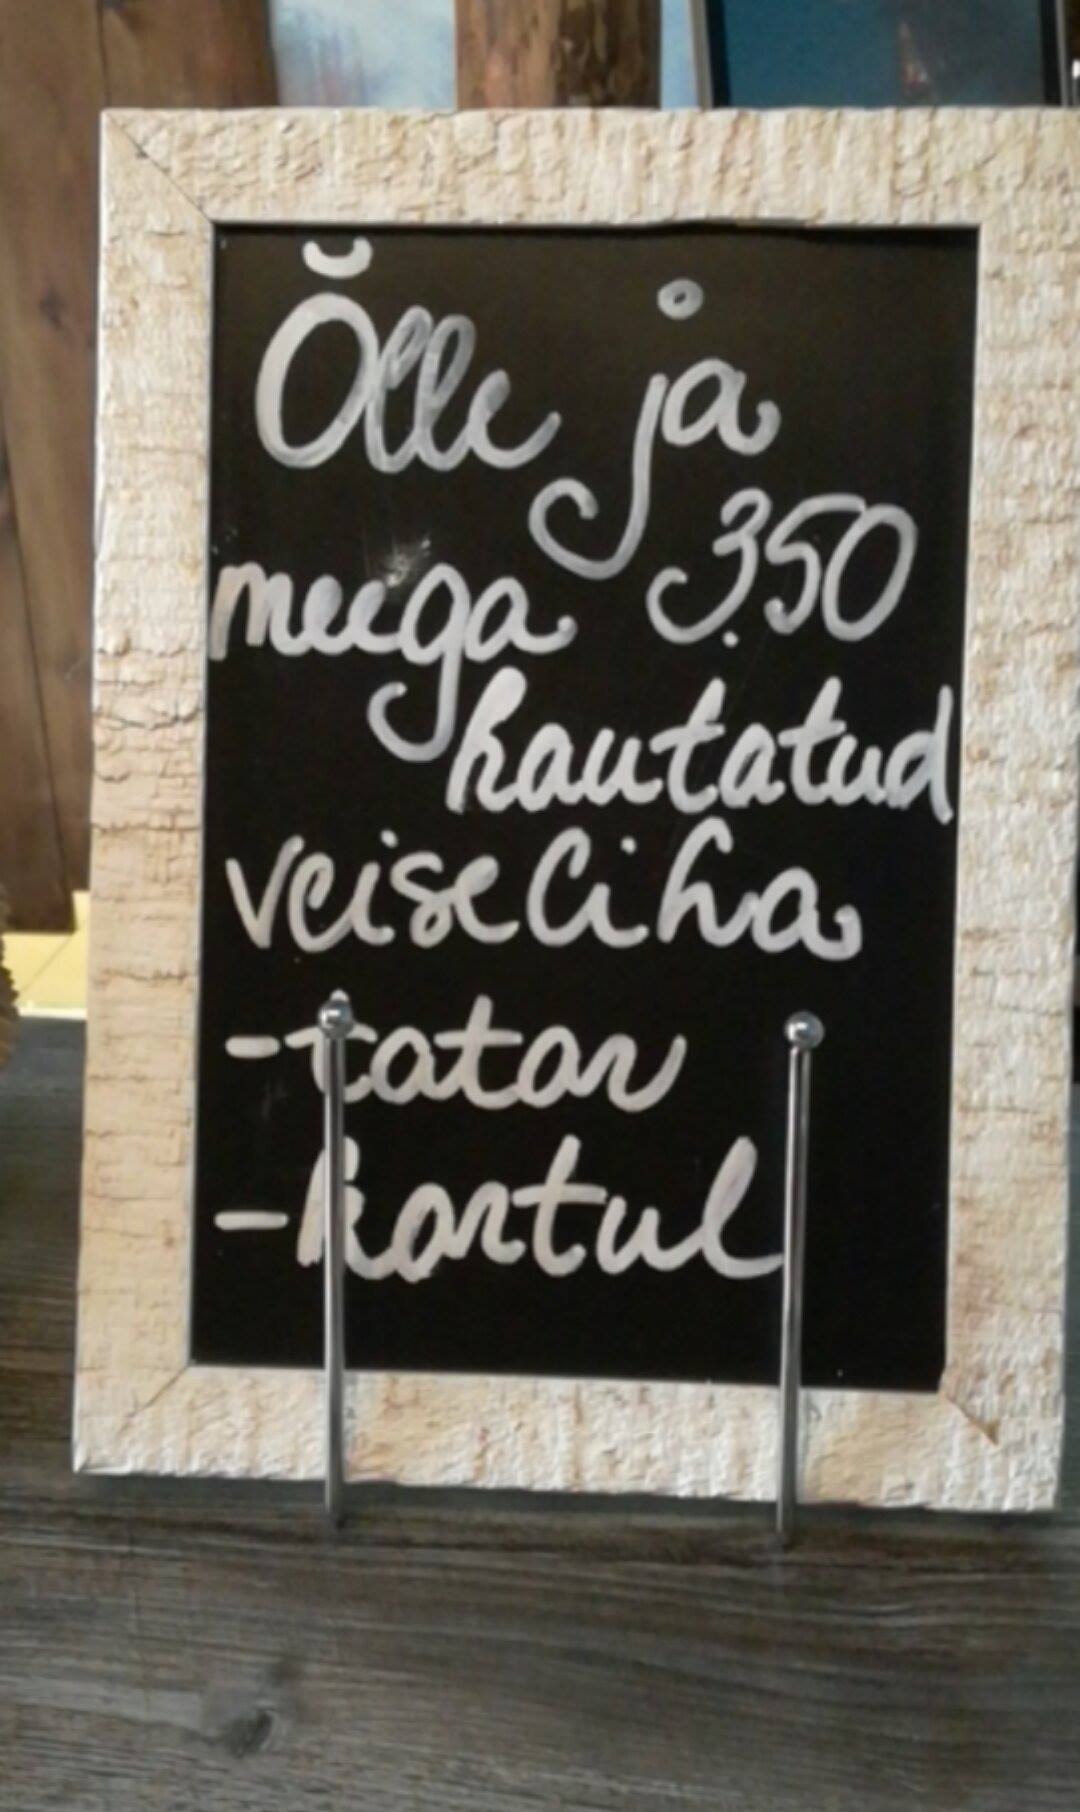 Õlle ja
meega 3.50
hautatud
veiseliha
-tatar
-kartul